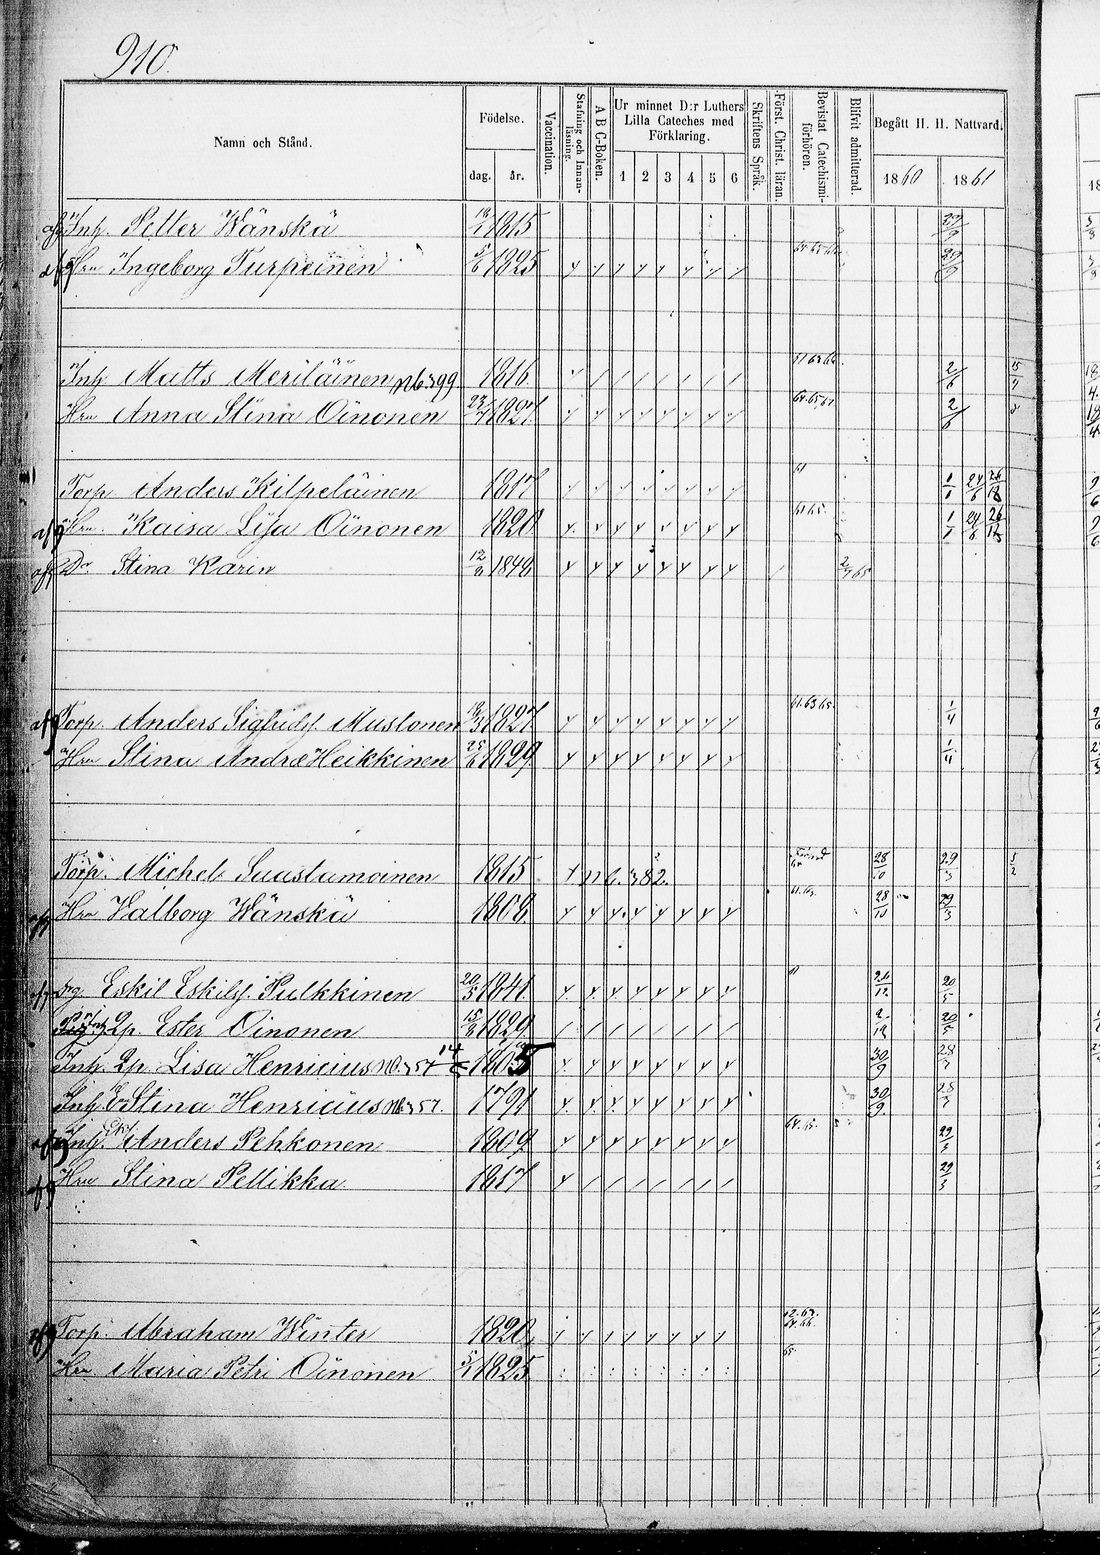 910.
Namn och Stånd. Födelse. dag. år. Vaccination. Stafning och Innanläsning. A B C-Boken. Ur minnet D:r Luthers Lilla Cateches med Förklaring. 1 2 3 4 5 6 Skriftens Språk. Först. Christ. läran. Bevistat Catechismiförhören. Blifvit admitterad. Begått H. H. Nattvard. 1860 1861
Inh. Petter Wänskä 1815 29/9
Hru Ingeborg Turpeinen 5/6 1825 64.65.66 29/9
Inh. Matts Meriläinen N6.399. 1816 61.63.66. 2/6 15/4
Hru Anna Stina Oinonen 23/7 1827. 64.65.67 2/6
Torp. Anders Kilpeläinen 1817 61 1/1 24/6 26/12
afg Hru. Kaisa Lisa Oinonen 1820 61 65. 1/1 24/6 26/12
Dr Stina Karin 12/9 1848 2/7 65
afg Torp. Anders Sigfridsf. Mustonen 18/3 1827. 61.63 65. 1/4
Hru Stina Andræ Heikkinen 25/6 1829 1/4
Torp. Michel Saastamoinen 1815 N6. 382. 28/10 29/3 3/2
Hru Valborg Wänskä 1808 61.63. 28/10 29/3
drg Eskil Eskilsf. Pulkkinen 20/5 1841 26/12 20/5
Qp. Ester Oinonen 15/8 1829 2/12 20/5
Inh. Qp. Lisa Henricius N6.357 14/5 1805 30/9 28/7
Inh. Stina Henricius N6.357. 1791 30/9 28/7
Inh. Anders Pehkonen 1809 64.65. 29/3
afg Hru Stina Pellikka 1817 29/3
afg Torp. Abraham Winter 1820 62.63. 64.66.
Hru Maria Petri Oinonen 5/4 1825 65